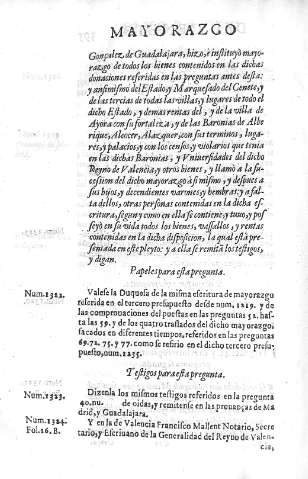 MAYORAZGO
Gonçalez, de Guadalajara, hizo, è instituyò mayo-
razgo de todos los bienes contenidos en las dichas
donaciones referidas en las preguntas antes desta:
y ansimismo del Estado, y Marquesado del Cenete, y
de las tercias de todas las villas, y lugares de todo el
dicho Estado, y demas rentas del, y de la villa de
Ayora con su fortaleza, y de las Baronias de Albe
rique, Alcocer, Alazquer, con sus terminos, luga-
res, y palacios, y con los censos, y violarios que tenia
en las dichas Baronias, y Vniuersidades del dicho
Reyno de Valencia, y otros bienes, y llamò a la su-
cession del dicho mayorazgo à si mismo, y despues a
sus hijos, y decendientes varones, y hembras, y a fal-
ta dellos, otras personas contenidas en la dicha es-
critura, segun y como en ella se contiene, y tuuo, y pos
seyò en su vida todo los bienes, vassallos, y rentas
contenidas en la dicha disposicion, la qual està pre-
sentada en este pleyto: y a ella se remitā los testigos, y
digan.
Papeles para esta pregunta.
Num.1322.
Valese la Duquesa de la misma escritura de mayorazgo
referida en el tercero presupuesto desde num.1219. y de
las comprouaciones del puestas en las preguntas 52. has-
ta las 59. y de los quatro traslados del dicho mayorazgo,
sacados en diferentes tiempos, referidos en las preguntas
69.72. 75. y 77. como se refirio en el dicho tercero presu-
puesto, num.1255.
Testigos para esta pregunta.
Num.1323.
Dizenla los mismos testigos referidos en la pregunta
40.nu. de oidas, y remitense en las prouanças de Ma
drid, y Guadalajara.
Num.1324.
Fol.16.B.
Y en la de Valencia Francisco Massent Notario, Secre
tario, y Escriuano de la Generalidad del Reyno de Valen-
cia,